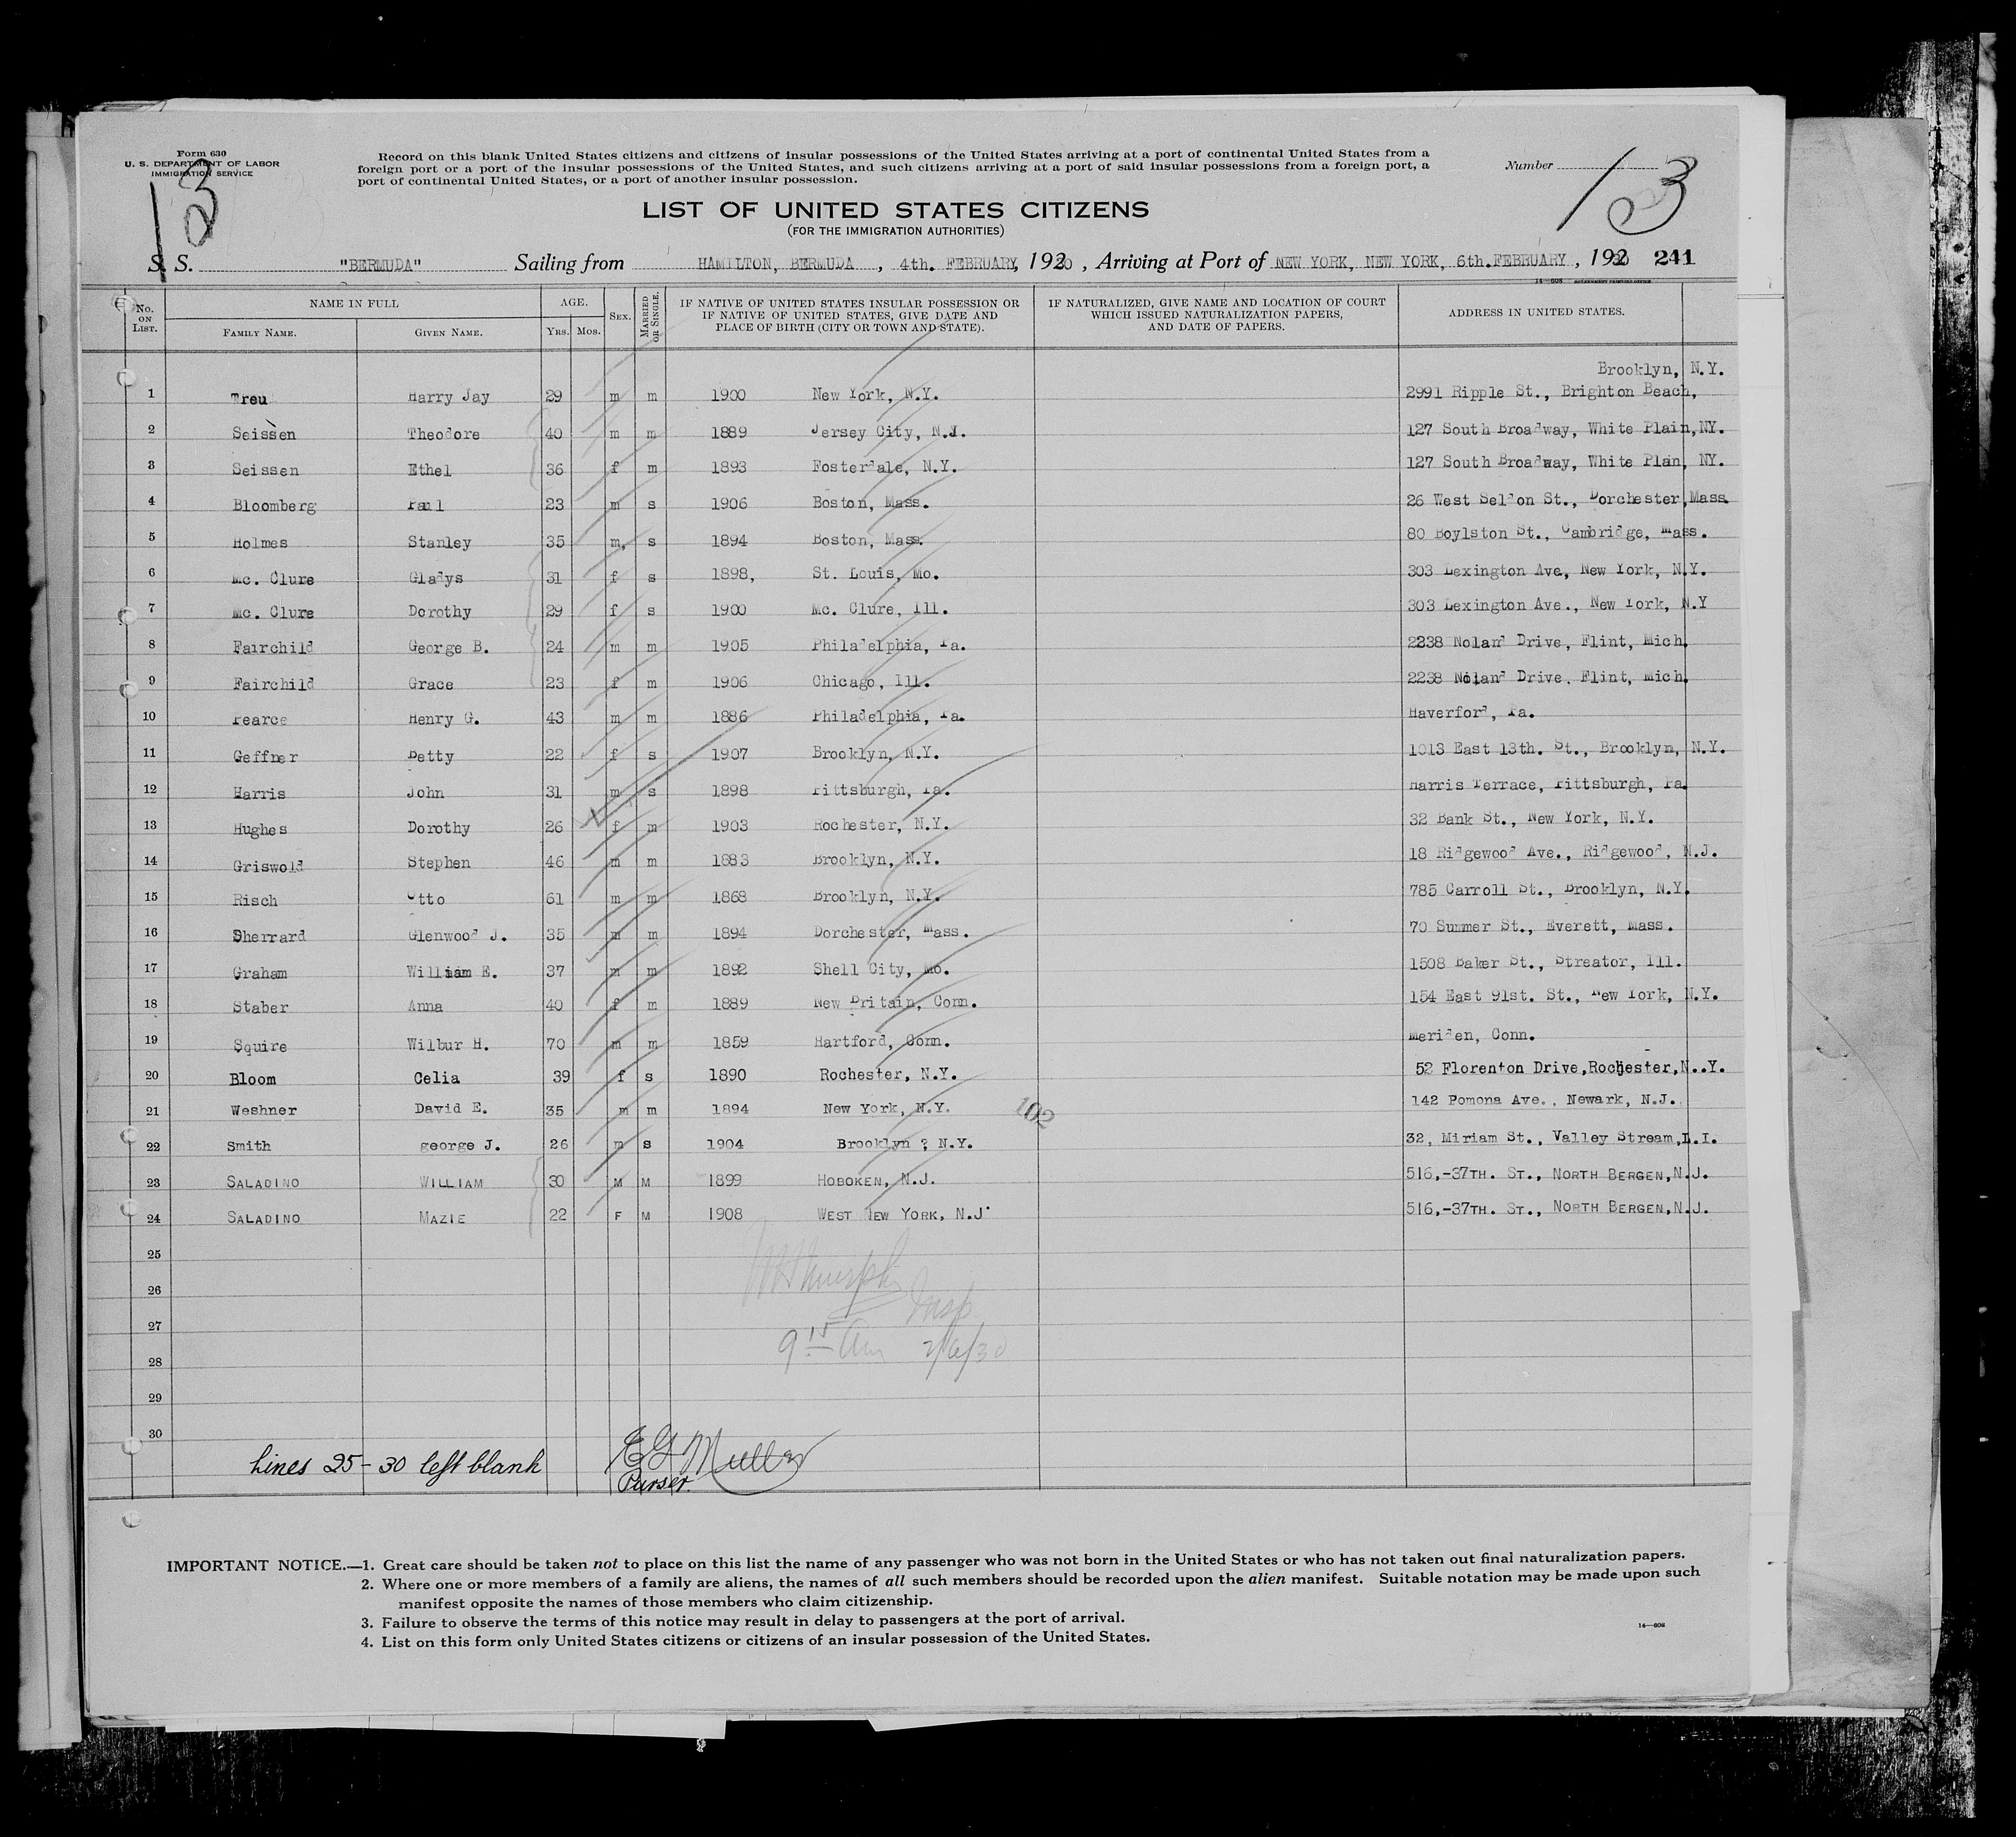 Form 630
U. S. DEPARTMENT OF LABOR
IMMIGRATION SERVICE
13
Record on this blank United States citizens and citizens of insular possessions of the United States arriving at a port of continental United States from a
foreign port or a port of the insular possessions of the United States, and such citizens arriving at a port of said insular possessions from a foreign port, a
port of continental United States, or a port of another insular possession.
Number 13
LIST OF UNITED STATES CITIZENS
(FOR THE IMMIGRATION AUTHORITIES)
S. S. "BERMUDA" Sailing from HAMILTON, BERMUDA, 4th. FEBRUARY, 1930, Arriving at Port of NEW YORK, NEW YORK, 6th. FEBRUARY, 1930 241
14—608 GOVERNMENT PRINTING OFFICE
No. ON LIST. NAME IN FULL FAMILY NAME. GIVEN NAME. AGE. YRS. MOS. SEX. MARRIED OR SINGLE. IF NATIVE OF UNITED STATES INSULAR POSSESSION OR IF NATIVE OF UNITED STATES, GIVE DATE AND PLACE OF BIRTH (CITY OR TOWN AND STATE). IF NATURALIZED, GIVE NAME AND LOCATION OF COURT WHICH ISSUED NATURALIZATION PAPERS, AND DATE OF PAPERS. ADDRESS IN UNITED STATES.
Brooklyn, N.Y.
1 Treu Harry Jay 29 m m 1900 New York, N.Y. 2991 Ripple St., Brighton Beach,
2 Seissen Theodore 40 m m 1889 Jersey City, N.J. 127 South Broadway, White Plain, NY.
3 Seissen Ethel 36 f m 1893 Fosterdale, N.Y. 127 South Broadway, White Plan, NY.
4 Bloomberg Paul 23 m s 1906 Boston, Mass. 26 West Seldon St., Dorchester, Mass.
5 Holmes Stanley 35 m, s 1894 Boston, Mass. 80 Boylston St., Cambridge, Mass.
6 Mc. Clure Gladys 31 f s 1898, St. Louis, Mo. 303 Lexington Ave, New York, N.Y.
7 Mc. Clure Dorothy 29 f s 1900 Mc. Clure, Ill. 303 Lexington Ave., New York, N.Y
8 Fairchild George B. 24 m m 1905 Philadelphia, Pa. 2238 Noland Drive, Flint, Mich.
9 Fairchild Grace 23 f m 1906 Chicago, Ill. 2238 Noland Drive, Flint, Mich.
10 Pearce Henry G. 43 m m 1886 Philadelphia, Pa. Haverford, Pa.
11 Geffner Betty 22 f s 1907 Brooklyn, N.Y. 1013 East 13th. St., Brooklyn, N.Y.
12 Harris John 31 m s 1898 Pittsburgh, Pa. Harris Terrace, Pittsburgh, Pa.
13 Hughes Dorothy 26 f m 1903 Rochester, N.Y. 32 Bank St., New York, N.Y.
14 Griswold Stephen 46 m m 1883 Brooklyn, N.Y. 18 Ridgewood Ave., Ridgewood, N.J.
15 Risch Otto 61 m m 1868 Brooklyn, N.Y. 785 Carroll St., Brooklyn, N.Y.
16 Sherrard Glenwood J. 35 m m 1894 Dorchester, Mass. 70 Summer St., Everett, Mass.
17 Graham William E. 37 m m 1892 Shell City, Mo. 1508 Baker St., Streator, Ill.
18 Staber Anna 40 f m 1889 New Britain, Conn. 154 East 91st. St., New York, N.Y.
19 Squire Wilbur H. 70 m m 1859 Hartford, Conn. Meriden, Conn.
20 Bloom Celia 39 f s 1890 Rochester, N.Y. 52 Florenton Drive, Rochester, N..Y.
21 Weshner David E. 35 m m 1894 New York, N.Y. 102 142 Pomona Ave., Newark, N.J.
22 Smith george J. 26 m s 1904 Brooklyn ? N.Y. 32, Miriam St., Valley Stream, L.I.
23 SALADINO WILLIAM 30 M M 1899 HOBOKEN, N.J. 516,-37TH. ST., NORTH BERGEN, N.J.
24 SALADINO MAZIE 22 F M 1908 WEST NEW YORK, N.J. 516,-37TH. ST., NORTH BERGEN, N.J.
25
26
Insp.
27
9 15 Am 2/6/30
28
29
30
Lines 25-30 left blank E G Muller
Purser.
IMPORTANT NOTICE.—1. Great care should be taken not to place on this list the name of any passenger who was not born in the United States or who has not taken out final naturalization papers.
2. Where one or more members of a family are aliens, the names of all such members should be recorded upon the alien manifest. Suitable notation may be made upon such
manifest opposite the names of those members who claim citizenship.
3. Failure to observe the terms of this notice may result in delay to passengers at the port of arrival.
4. List on this form only United States citizens or citizens of an insular possession of the United States.
14—608